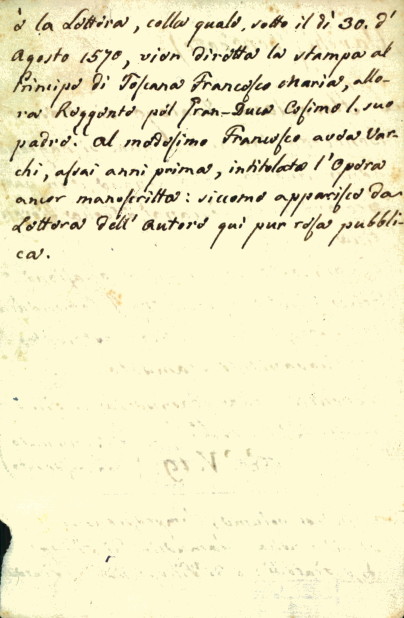 è la Lettera, colla quale, sotto il dì 30. d'
Agosto 1570, vien diretta la stampa al
Principe di Toscana Francesco Maria, allo-
ra Reggente pel Gran-Duca Cosimo I. suo
padre. Al medesimo Francesco avea Var-
chi, assai anni prima, intitolata l'Opera
ancor manoscritta: siccome apparisce da
Lettera dell'Autore qui pur resa pubbli-
ca.